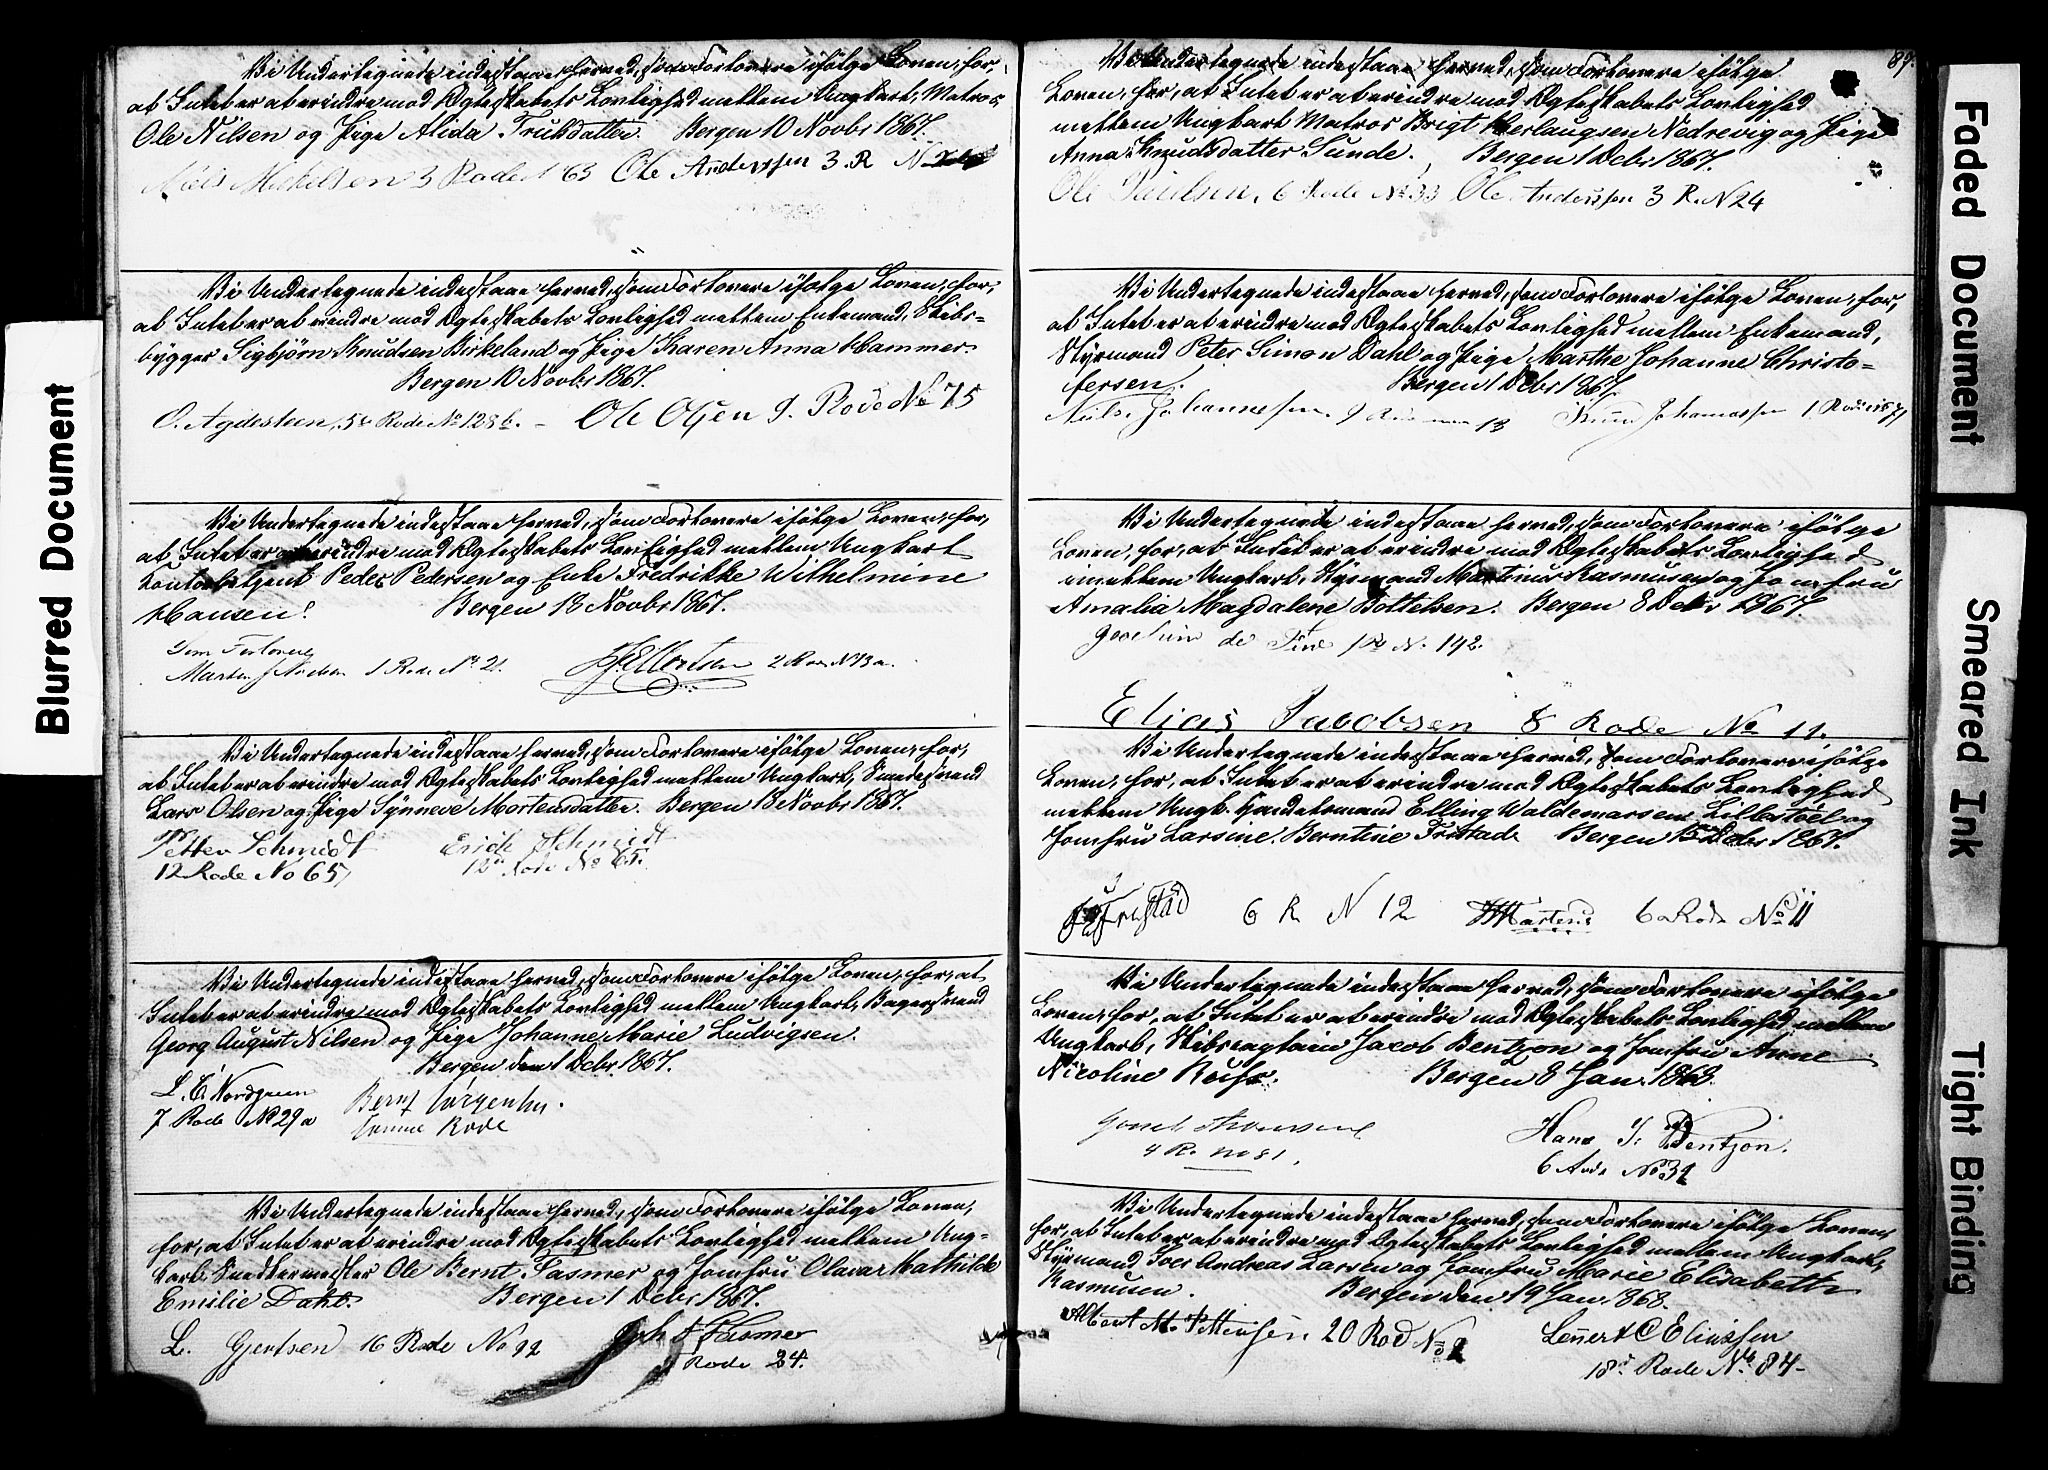 Vi Undertegnede indestaae herved, som Forlovere ifølge Loven, for,
at Intet er at erindre mod Ægteskabets Lovlighed mellem Ungkarl, Matros
Ole Nilsen og Pige Alida Trulsdatter. Bergen 10 Novbr 1867.
Niels Mickelsen 3 Rode 163 Ole Anderssen 3. R N
Vi Undertegnede indestaae herved, som Forlovere ifølge Loven, for,
at Intet er at erindre mod Ægteskabets Lovlighed mellem Enkemand, Skibs-
bygger Sigbjörn Knudsen Birkeland og Pige Karen Anna Hammer.
Bergen 10 Novbr 1867.
O. Agdesteen, 5te Rode No 128b. - Ole Olsen 9. Rode No 75
Vi Undertegnede indestaae herved, som Forlovere ifølge Loven, for,
at Intet er at erindre mod Ægteskabets Lovlighed mellem Ungkarl
Peder Pedersen og Enke Fredrikke Wilhelmine
Hansen. Bergen 13 Novbr 1867.
Som Forlovere
1 Rode No 21. 2 Rode N 13a.
Vi Undertegnede indestaae herved, som Forlovere ifølge Loven, for,
at Intet er at erindre mod Ægteskabets Lovlighed mellem Ungkarl, Smedesvend
Lars Olsen og Pige Synneve Mortensdatter. Bergen 13 Novbr 1867.
Petter Schmidt Erick Schmidt
12 Rode No 65, 12te Rode No 65.
Vi Undertegnede indestaae herved, som Forlovere ifølge Loven, for, at
Intet er at erindre mod Ægteskabets Lovlighed mellem Ungkarl, Bagersvend
Georg August Nilsen og Pige Johanne Marie Ludvigsen.
Bergen den 1 Debr 1867.
L. E. Nordgreen Bernt
7 Rode No 29a Rode
Vi Undertegnede indestaae herved, som Forlovere ifølge Loven,
for, at Intet er at erindre mod Ægteskabets Lovlighed mellem Ung-
karl, Snedkermester Ole Bernt Sasmer og Jomfru Olava Mathilde
Emilie Dahl. Bergen 1 Debr 1867.
L. Gjertsen 16 Rode No 92 Joh F Sasmer
Rode 34.
89.
Vi Undertegnede indestaae herved, som Forlovere ifølge
Loven, for, at Intet er at erindre mod Ægteskabets Lovlighed
mellem Ungkarl Matros Brigt Herlaugsen Nedrevig og Pige
Anna Knudsdatter Sunde. Bergen 1 Debr 1867.
Ole 6 Rode No 33 Ole Anderssen 3 R. N 24
Vi Undertegnede indestaae herved, som Forlovere ifølge Loven, for,
at Intet er at erindre mod Ægteskabets Lovlighed mellem Enkemand,
Styrmand Peter Simon Dahl og Pige Marthe Johanne Christo-
fersen. Bergen 1 Debr 1867.
Niels Johannesen 9 13 Johannessen 1 Rode
Vi Undertegnede indestaae herved, som Forlovere ifølge
Loven, for, at Intet er at erindre mod Ægteskabets Lovlighed
mellem Ungkarl, Styrmand Martinus Rasmusen og Jomfru
Amalia Magdalene Bottelsen. Bergen 8 Debr 1867.
Joachim de Fine 1 R N. 192.
Elias Jacobsen 8 Rode No 11.
Vi Undertegnede indestaae herved, som Forlovere ifølge
Loven, for, at Intet er at erindre mod Ægteskabets Lovlighed
mellem Ungk. Handelsmand Elling Waldemarsen Lillestöl og
Jomfru Larsine Berntine Fristad. Bergen 15 Debr 1867.
Fristad 6 R N 12 Martens 6 Rode No 11
Vi Undertegnede indestaae herved, som Forlovere ifølge
Loven, for, at Intet er at erindre mod Ægteskabets Lovlighed mellem
Ungkarl, Skibscaptain Jacob Bentzon og Jomfru Anne
Nicoline Reuss. Bergen 8 Jan. 1868.
Hans J. Bentzon.
4 R. No 81. 6 Rode No 31
Vi Undertegnede indestaae herved, som Forlovere ifølge Loven,
for, at Intet er at erindre mod Ægteskabets Lovlighed mellem Ungkarl,
Styrmand Iver Andreas Larsen og Jomfru Marie Elisabeth
Rasmusen. Bergen den 19 Jan 1868.
Albert M. Pettersen 20 Rode No 2 Lennert C Eliassen
18de Rode No 84-
Blurred Document
Faded Document
Smeared Ink
Tight Binding